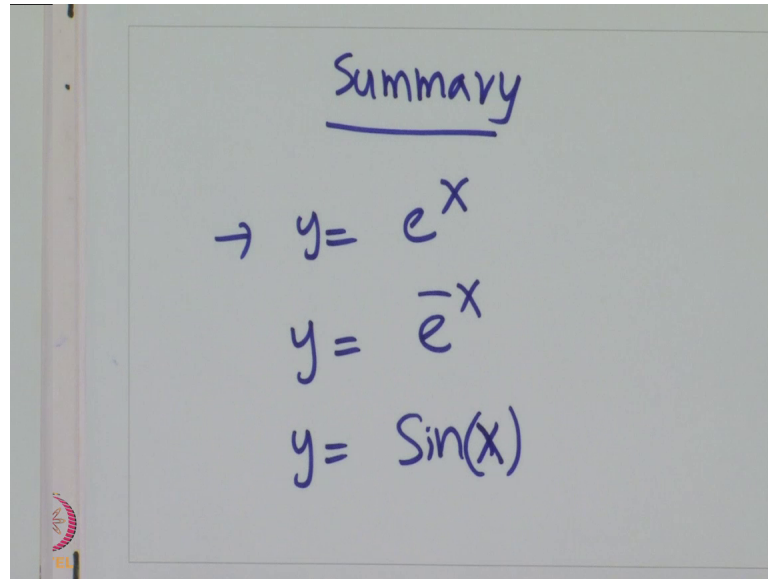 Summary
→ y = eˣ
y = e⁻ˣ
y = Sin(x)